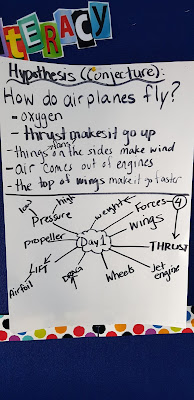 TERACY
Hypothesis (Conjecture):
How do airplanes fly?
- oxygen
- thrust makes it go up
- things on the sides make wind
- air comes out of engines
- the top of wings make it go faster
low
high
Pressure
weight
Forces - 4
wings
propeller
Day 1
THRUST
LIFT
Airfoil
Drag
Wheels
Jet engine